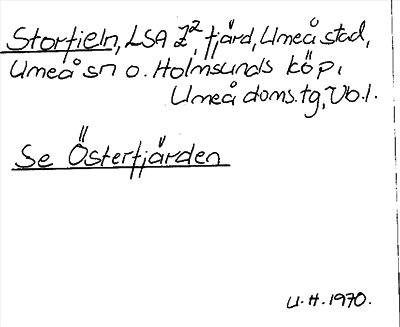 Storfjeln, LSA Z², fjärd, Umeå stad,
Umeå sn o. Holmsunds köp.
Umeå doms.tg, Vb.l.
Se Österfjärden
U.H. 1970.